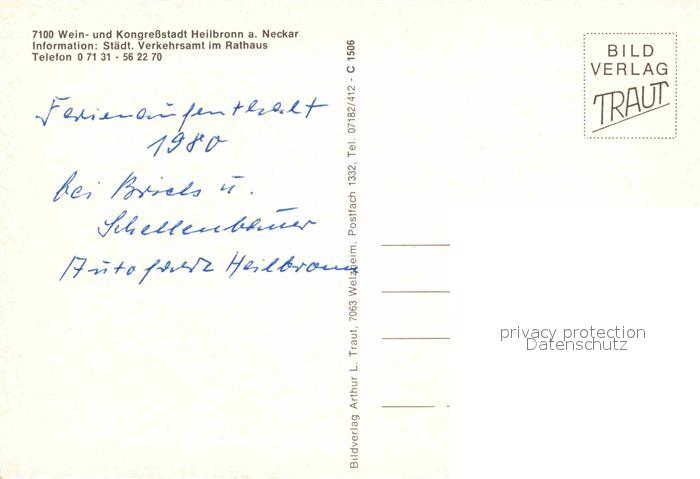 7100 Wein- und Kongreßstadt Heilbronn a. Neckar
Information: Städt. Verkehrsamt im Rathaus
Telefon 0 71 31 - 56 22 70
Ferienaufenthalt
1980
bei u.
Schellenbauer
Heilbronn
Bildverlag Arthur L. Traut, 7063 Welzheim, Postfach 1332, Tel. 07182/412 - C 1506
BILD
VERLAG
TRAUT
privacy protection
Datenschutz